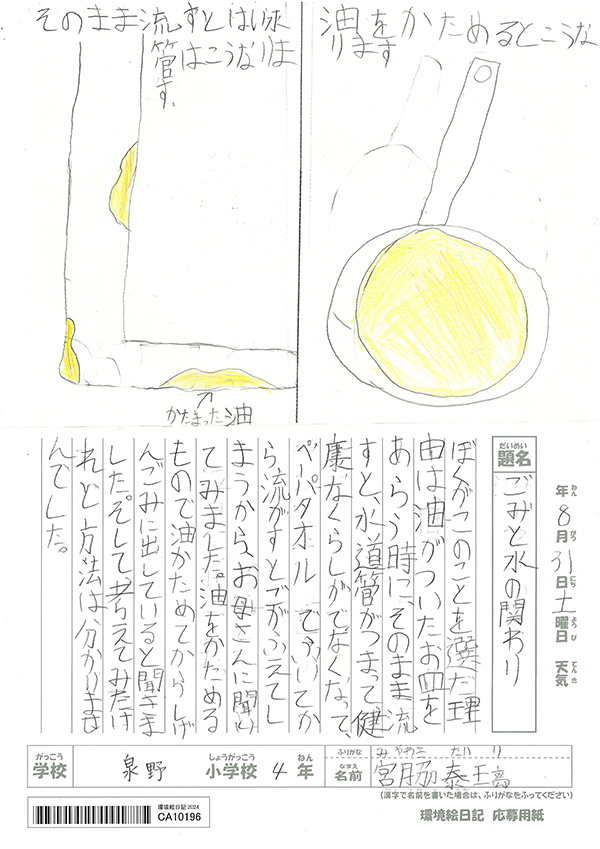 油をかためるとこうな
ります
そのまま流すとはい水
管はこうなりま
す。
↑
かたまった油
年 8月31日土曜日 天気
ねん がつ にち ようび てんき
だいめい
題名
ごみと水の関わり
ぼくがこのことを選だ理
由は油がついたお皿を
あらう時に、そのまま流
すと、水道管がつまって健
康なくらしがでなくなって、
ペーパタオルでふいてか
ら流がすとゴがふえてし
まうから、お母さんに聞い
てみました。油をかためる
もので油かためてからしげ
んごみに出していると聞きま
した。そして、考えてみたけ
れど方法は分かりませ
んでした。
がっこう しょうがっこう ねん
学校 泉野 小学校 4年
ふりがな みやわき たいり
なまえ
名前 宮脇泰
(漢字で名前を書いた場合は、ふりがなをふってください)
環境絵日記 2024
CA10196
環境絵日記 応募用紙